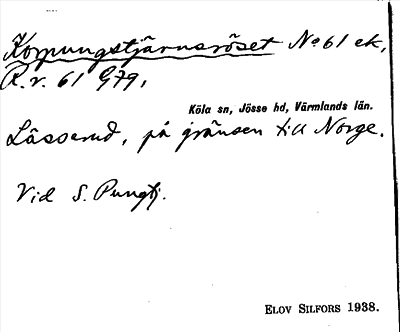 Korpungstjärnsröset No 61 ek,
R.r. 61 G79,
Köla sn, Jösse hd, Värmlands län.
Lässerud, på gränsen till Norge.
Vid S. Pungtj.
ELOV SILFORS 1938.